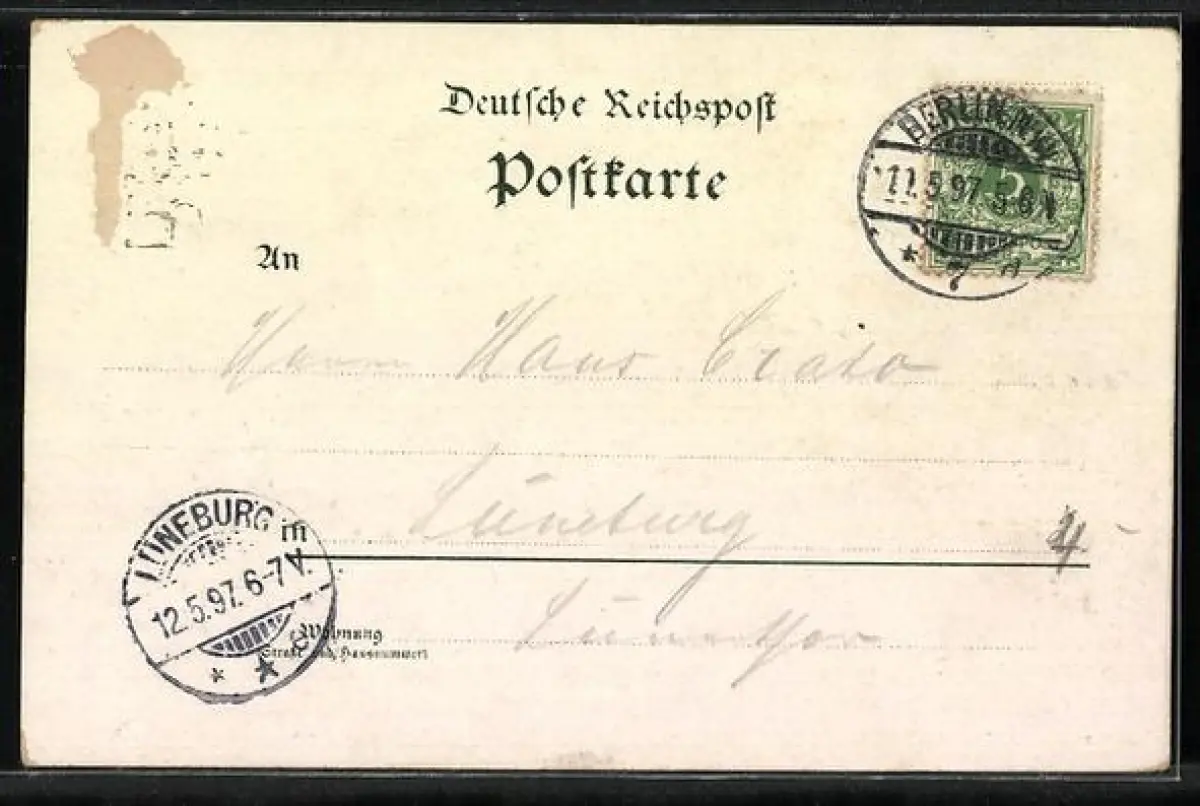 Deutsche Reichspost
Postkarte
BERLIN
11.5.97. 5-6 N
5
An
Herrn Hans Crato
in Lüneburg
4
LÜNEBURG
12.5.97. 6-7 V.
Wohnung
(Straße und Hausnummer)
Lünerthor